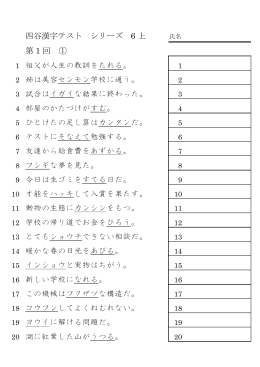 四谷漢字テスト　シリーズ　6上　氏名
第1回　①
1 祖父が人生の教訓をたれる。 1
2 姉は美容センモン学校に通う。 2
3 試合はイガイな結果に終わった。 3
4 部屋のかたづけがすむ。 4
5 ひとけたの足し算はカンタンだ。 5
6 テストにそなえて勉強する。 6
7 友達から給食費をあずかる。 7
8 フシギな夢を見た。 8
9 今日は生ゴミをすてる日だ。 9
10 才能をハッキして入賞を果たす。 10
11 動物の生態にカンシンをもつ。 11
12 学校の帰り道でお金をひろう。 12
13 とてもショウチできない相談だ。 13
14 暖かな春の日光をあびる。 14
15 インショウと実物はちがう。 15
16 新しい学校になれる。 16
17 この機械はフクザツな構造だ。 17
18 コウフンしてよくねむれない。 18
19 ヨウイに解ける問題だ。 19
20 湖に紅葉した山がうつる。 20